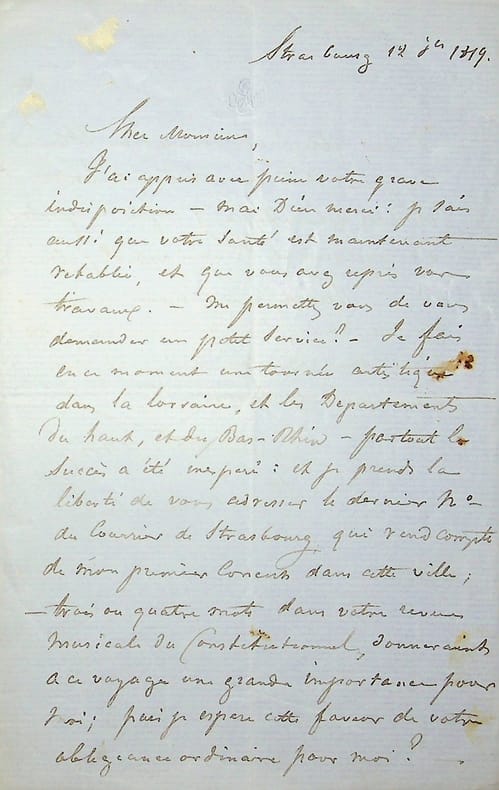 Strasbourg 12 1849.
Cher Monsieur,
J'ai appris avec peine votre grave
indisposition – mai Dieu merci! je sais
aussi que votre santé est maintenant
retablie, et que vous avez repris vos
travaux. – Me permettez vous de vous
demander un petit service? – Je fais
en ce moment une tournée artistique
dans la Lorraine, et les Departements
du haut, et du Bas-Rhin – partout le
succès a été inesperé: et je prends la
liberté de vous adresser le dernier No
du Courrier de Strasbourg, qui rend compte
de mon premier Concert dans cette ville;
– trois ou quatre mots dans votre revue
musicale du Constitutionnel, donneraient
a ce voyage une grande importance pour
moi; puis je esperer cette faveur de votre
obligeance ordinaire pour moi?